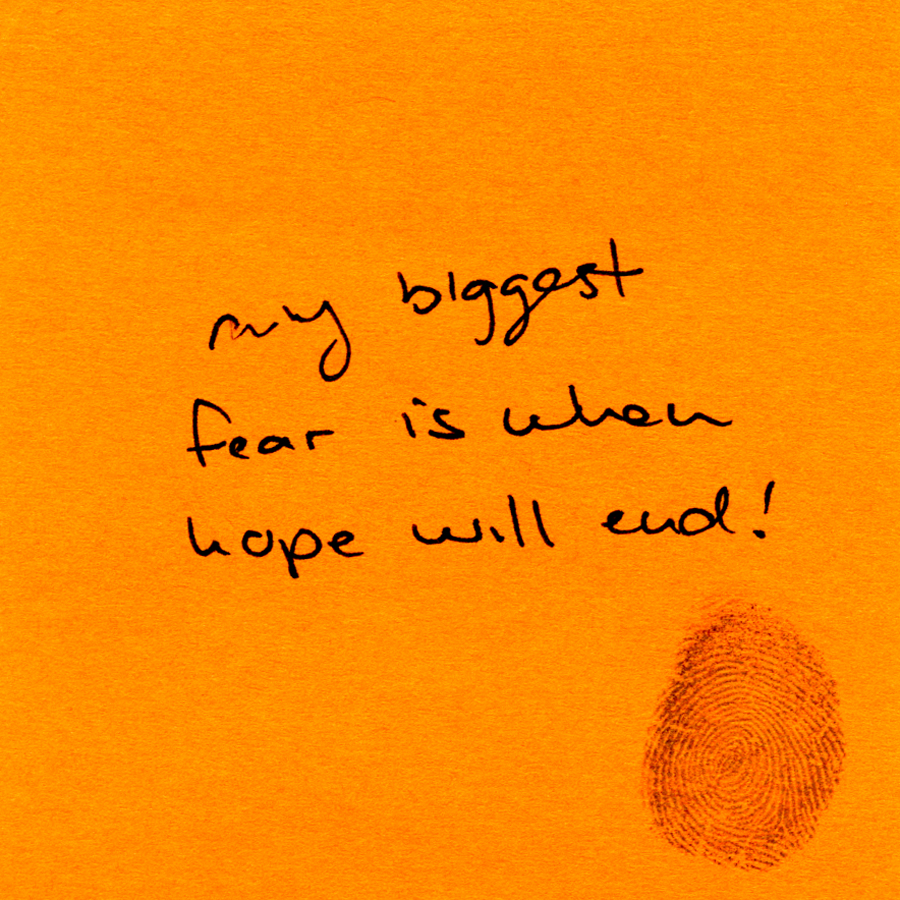 my biggest
fear is when
hope will end!